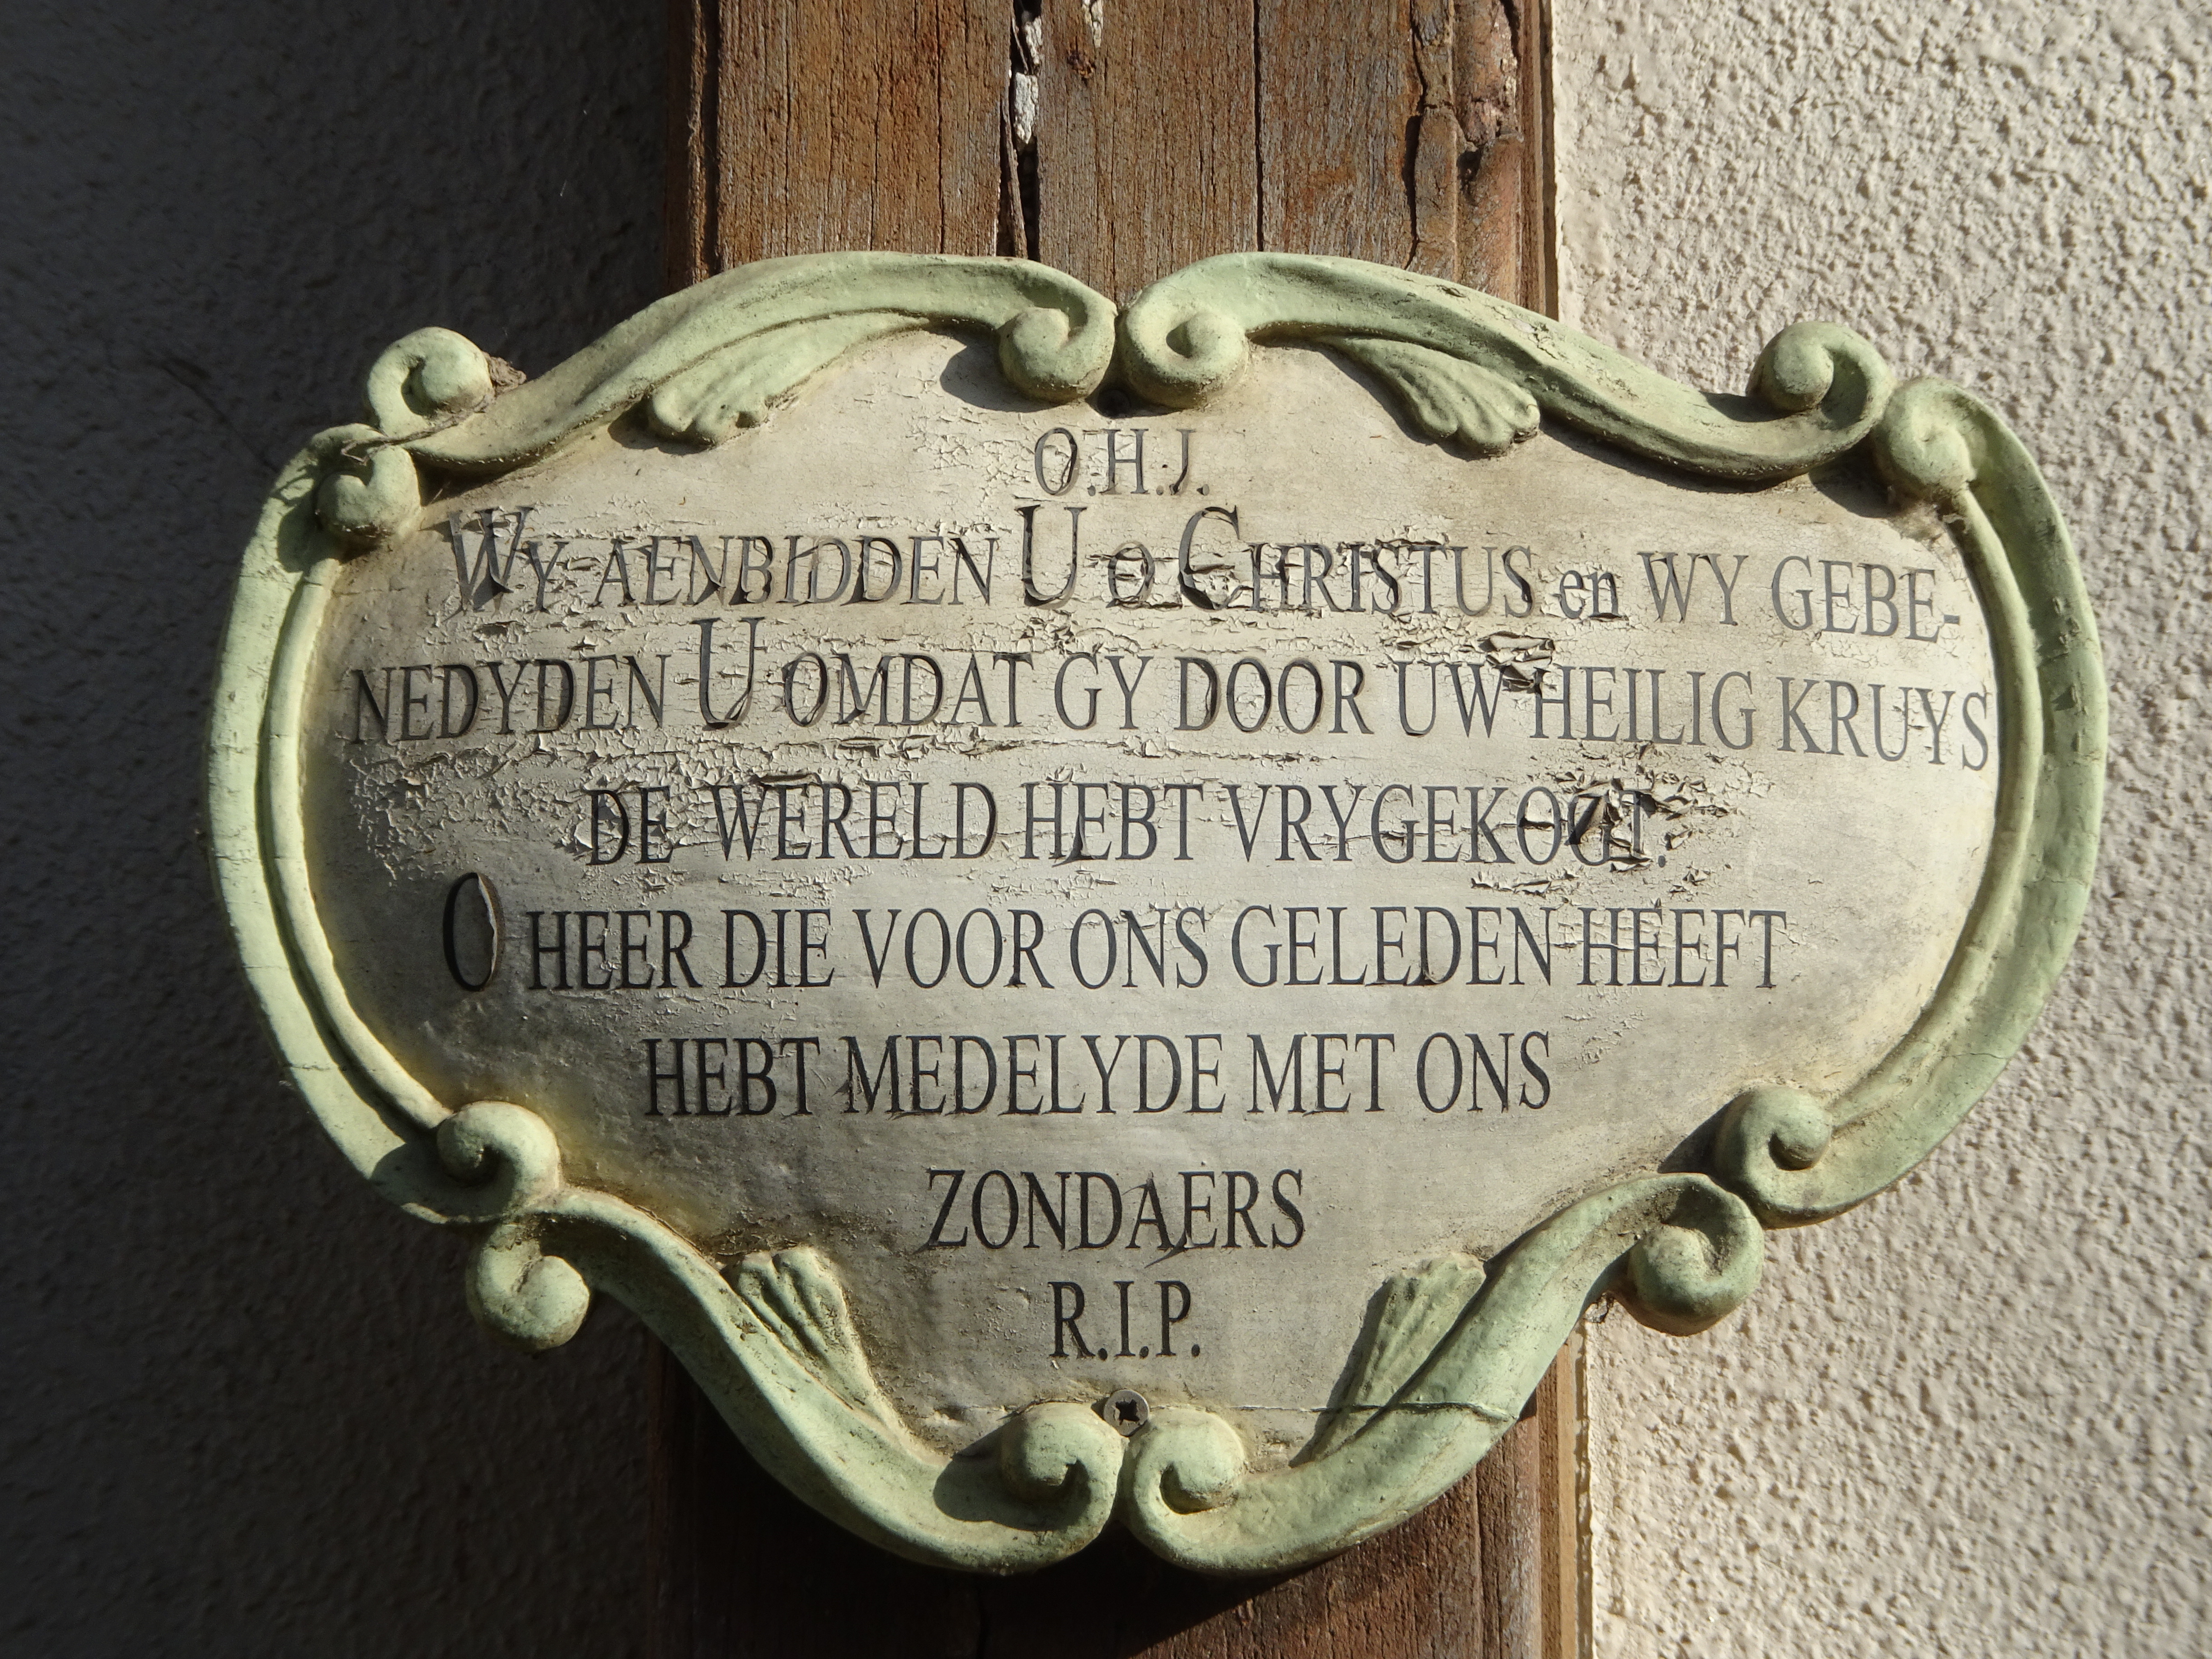 O.H.J.
WY AENBIDDEN U O CHRISTUS en WY GEBE-
NEDYDEN U OMDAT GY DOOR UW HEILIG KRUYS
DE WERELD HEBT VRYGEKOGT.
O HEER DIE VOOR ONS GELEDEN HEEFT
HEBT MEDELYDE MET ONS
ZONDAERS
R.I.P.